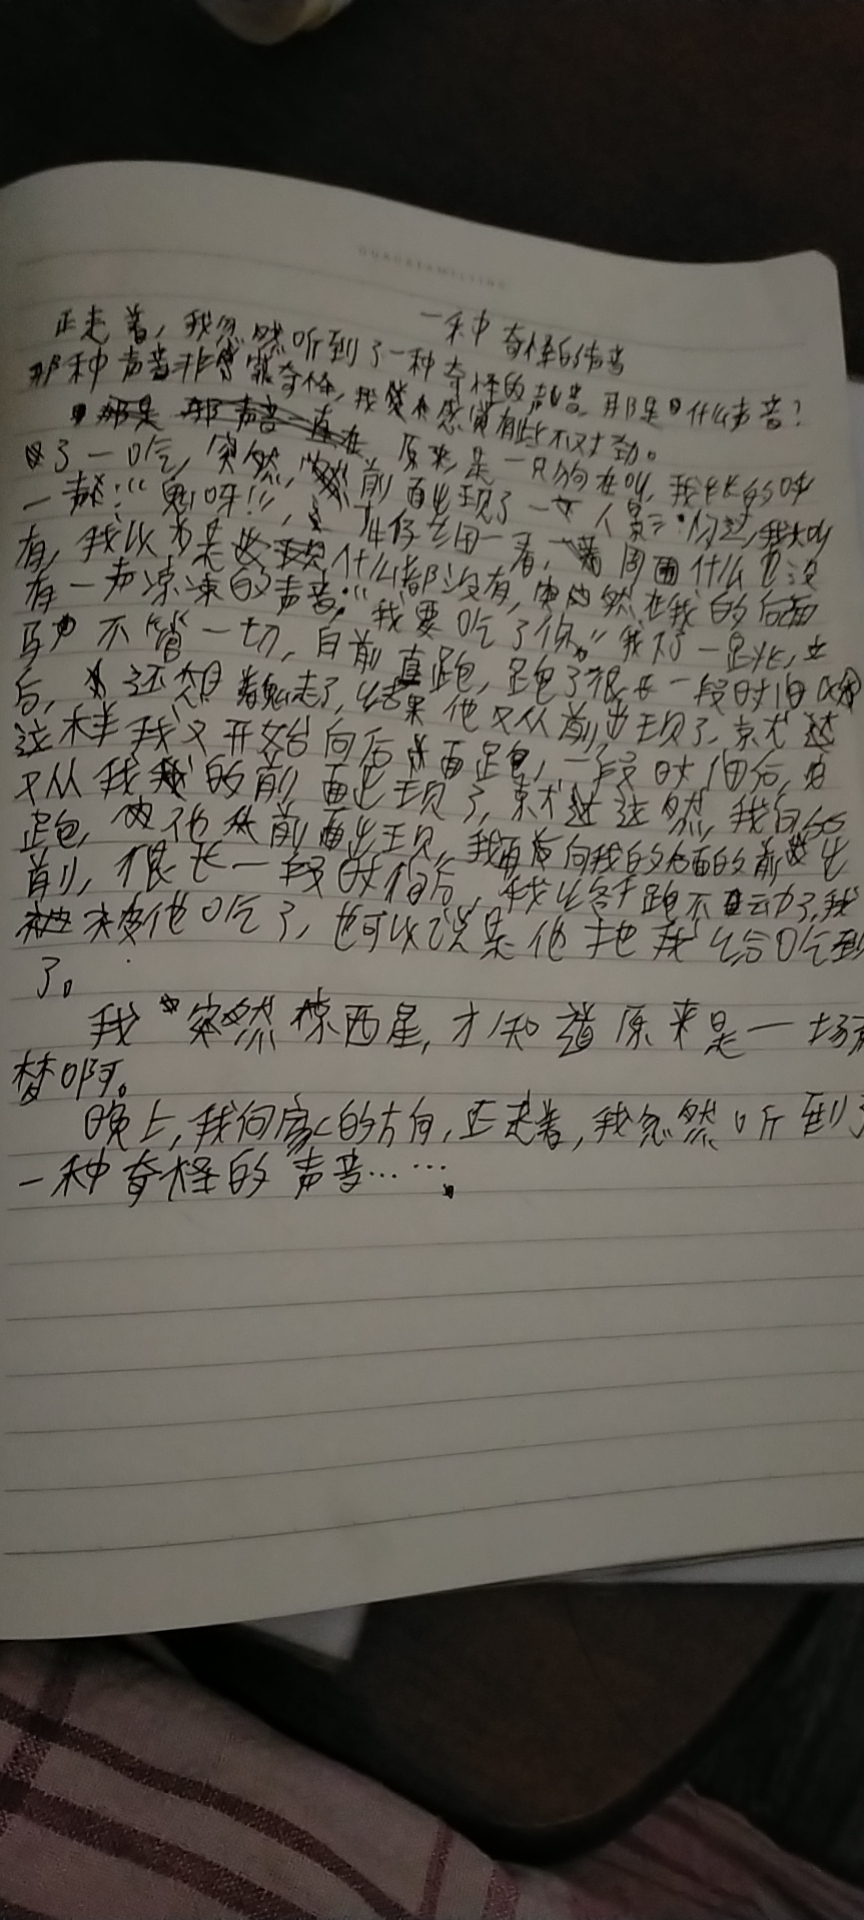 一种奇怪的声音
正走着，我忽然听到了一种奇怪的声音，那是什么声音？
那种声音非常奇怪，我感觉有些不对劲。
原来是一只狗在叫，我长长的呼
了一口气，突然，前面出现了一个人影闪过，我大叫
一声：“鬼呀!!!”，仔细一看，周围什么也没
有，我以为是什么都没有，突然在我的后面
有一声凉凉的声音：“我要吃了你。”我
不管一切，向前直跑，跑了很长一段时间以
后，还想着鬼走了，结果他又从前出现了，就
这样我又开始向后面跑，一段时间后，
又从我的前面出现了，就这然，我向
跑，他从前面出现，我再向我的面的前
前，很长一段时间后，我终于跑不动了，我
被他吃了，也可以说是他把我给吃到
了。
我突然惊西星，才知道原来是一场
梦啊。
晚上，我向家的方向，正走着，我忽然听到了
一种奇怪的声音……。